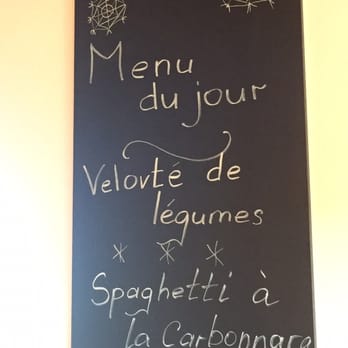 Menu
du jour
Velouté de
légumes
Spaghetti à
la Carbonnara